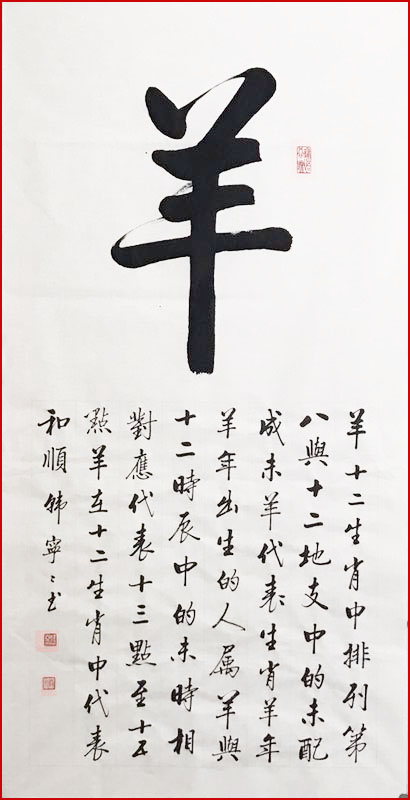 羊
羊十二生肖中排列第
八與十二地支中的未配
成未羊代表生肖羊年
羊年出生的人属羊與
十二時辰中的未時相
對應代表十三點至十五
點羊在十二生肖中代表
和順韩寧〻书